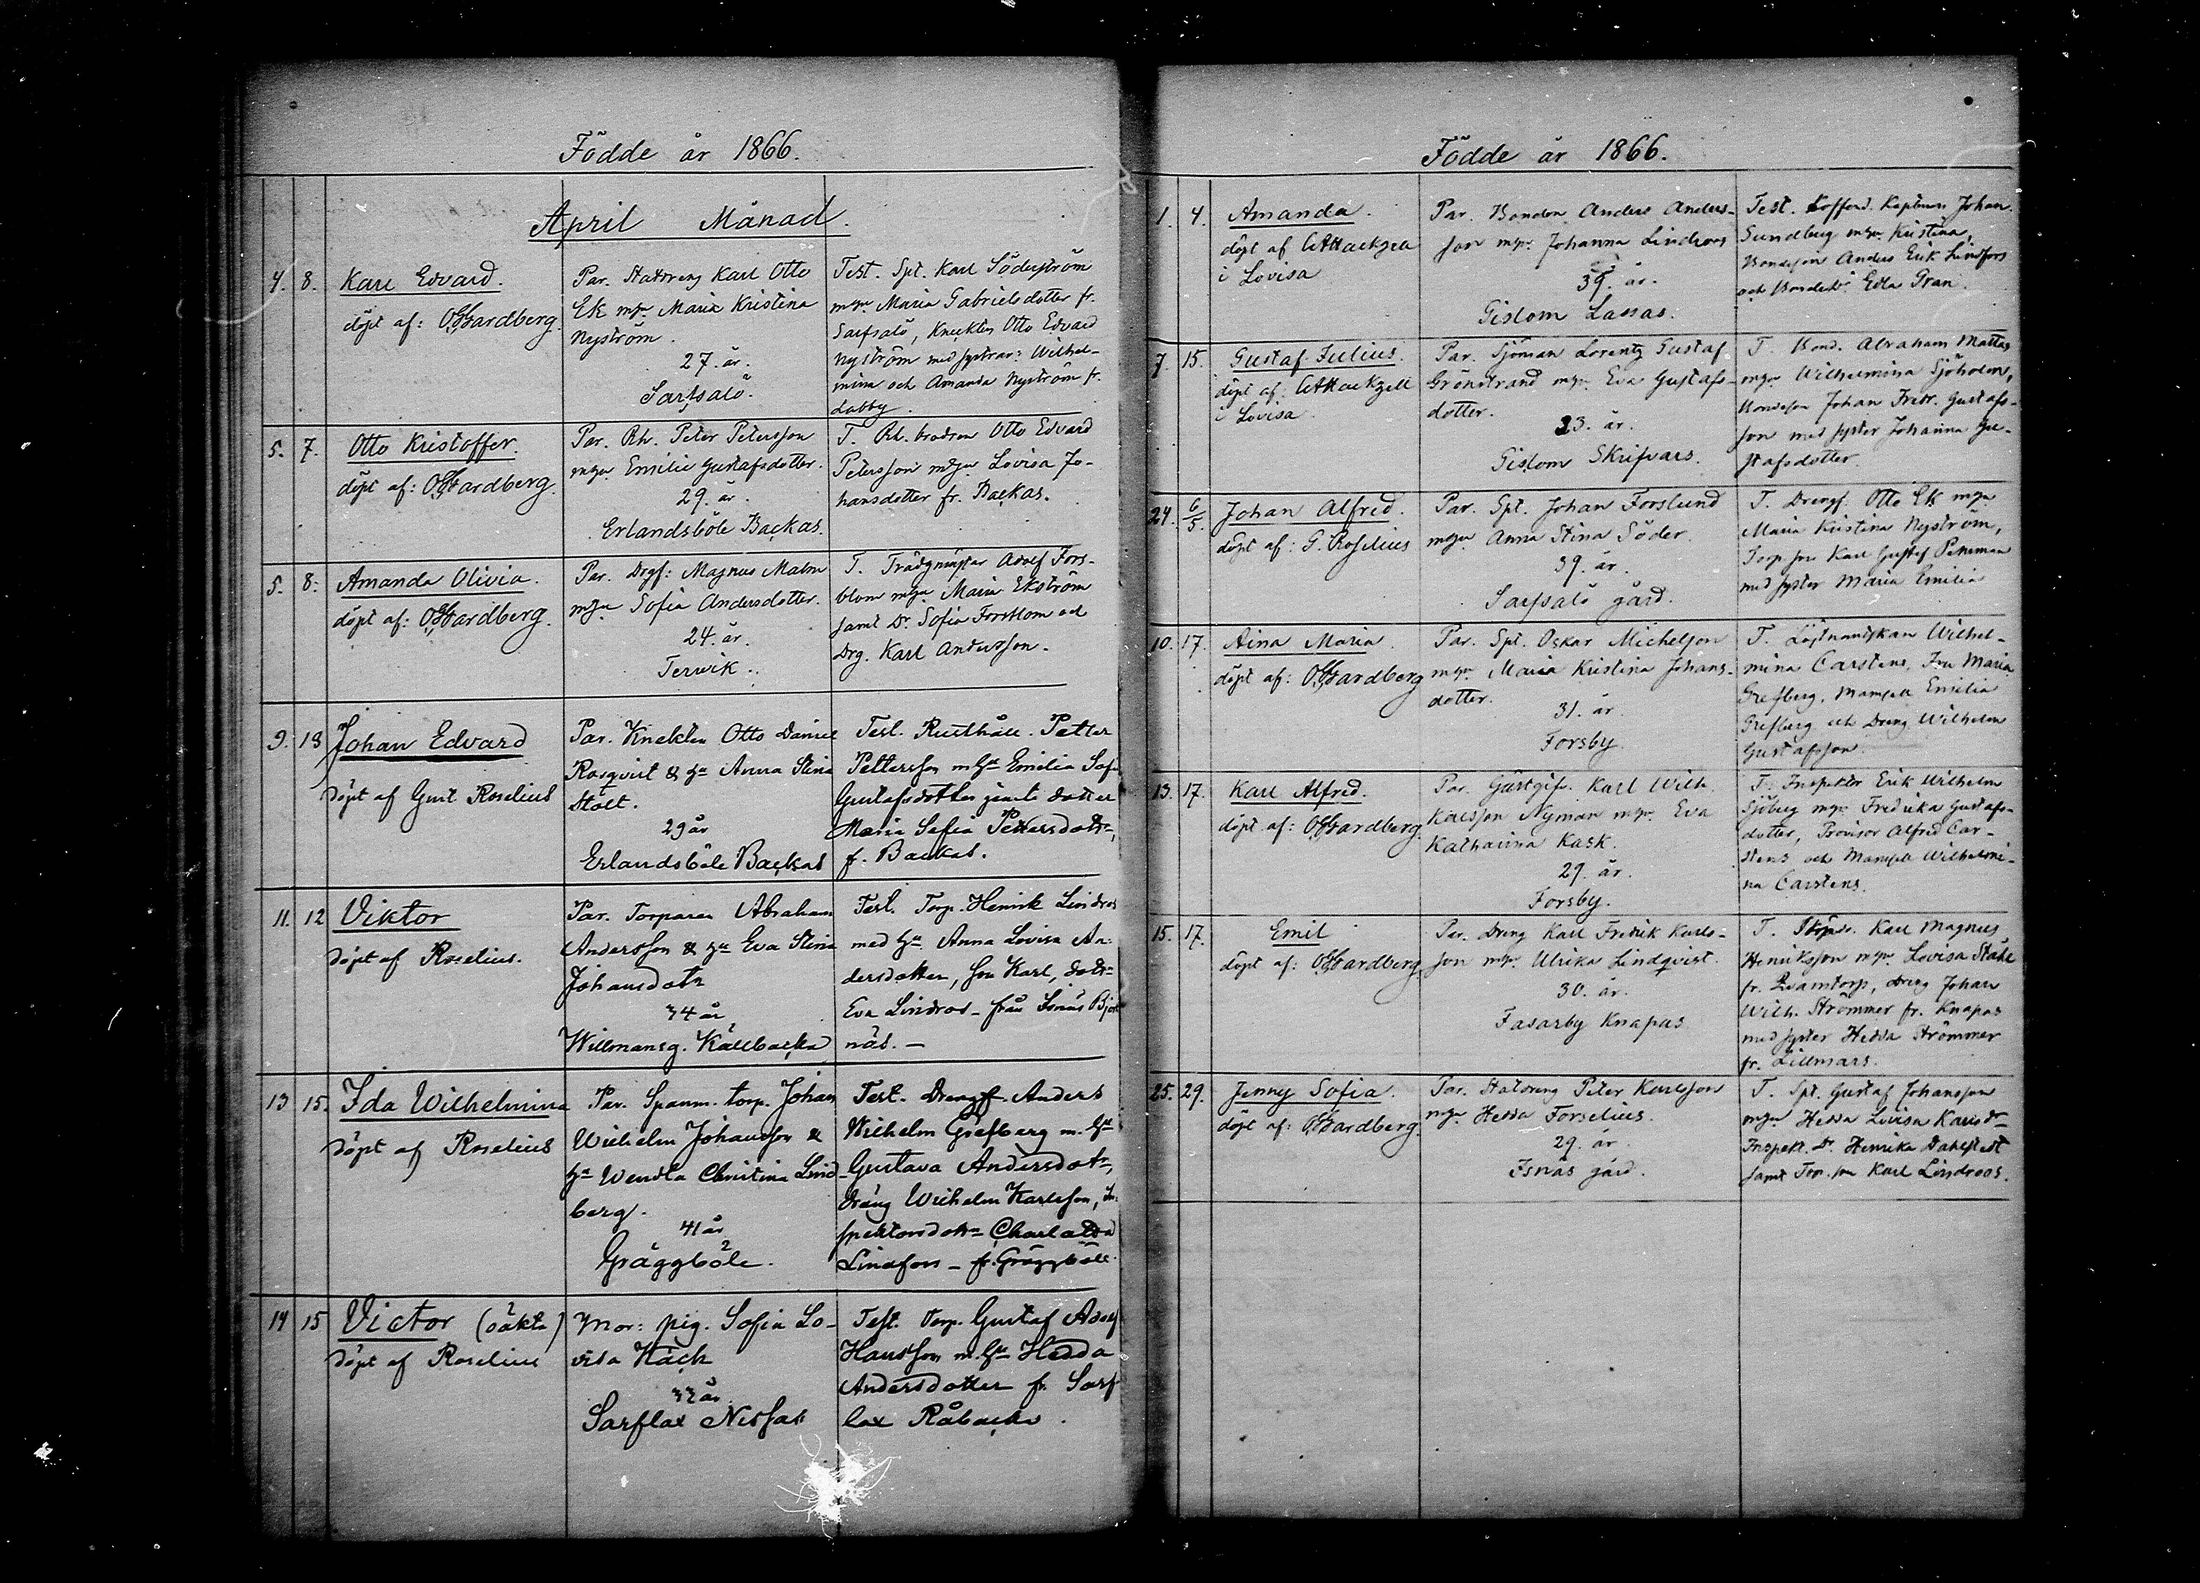 Födde år 1866.
April Månad.
4. 8. Karl Edvard.
döpt af: O. Hardberg.
Par. Statdreng Karl Otto
Ek m hu Maria Kristina
Nyström.
27. år.
Sarfsalö.
Test. Spt. Karl Söderström
m hu Maria Gabrielsdotter fr.
Sarfsalö, Knekten Otto Edvard
Nyström med systrar: Wilhel-
mina och Amanda Nyström fr.
dabby.
5. 7. Otto Kristoffer.
döpt af: O. Hardberg.
Par. Rh. Peter Petersson
m hu Emilie Gustafsdotter.
29. år.
Erlandsböle Backas.
T. Rh. brodren Otto Edvard
Petersson m hu Lovisa Jo-
hansdotter fr. Backas.
5. 8. Amanda Olivia.
döpt af: O. Hardberg.
Par. Drgf: Magnus Malm
m hu Sofia Andersdotter.
24. år.
Terwik.
T. Trädgmästar Adolf Fors-
blom m hu Maria Ekström
samt Dr. Sofia Forsblom och
Drg. Karl Andersson.
9. 13 Johan Edvard
döpt af Gust Roselius
Par. Knekten Otto Daniel
Rosqvist & hu Anna Stina
Stolt.
29 år
Erlandsböle Backas
Test. Rusthåll. Petter
Pettersson m hu Emilia Sof.
Gustafsdotter jemte dotter
Maria Sofia Pettersdotr,
f. Backas.
11. 12 Viktor
döpt af Roselius.
Par. Torparen Abraham
Andersson & hu Eva Stina
Johansdotr
34 år
Willmansg. Källbacka
Test. Torp. Henrik Lindros
med hu Anna Lovisa An-
dersdotter, son Karl, dotr
Eva Lindros – från Isnäs Björk
näs. –
13 15. Ida Wilhelmina
döpt af Roselius
Par. Spanm. torp. Johan
Wilhelm Johansson &
hu Wendla Christina Lind
berg.
41 år
Gräggböle.
Test. Drengf Anders
Wilhelm Grefberg m. hu
Gustava Andersdotr,
dräng Wilhelm Karlsson, In-
spektorsdotr Charlotta
Lindfors – fr. Gräggböle.
14 15 Victor (oäkta)
döpt af Roselius
Mor: pig. Sofia Lo-
visa Käck
32 år
Sarflax Nissas
Test. Torp. Gustaf Adolf
Hansson m. hu Hedda
Andersdotter fr. Sarf
lax Råbacka.
Födde år 1866.
1. 4. Amanda.
döpt af Attackzell
i Lovisa
Par. Bonden Anders Anders-
son m hu Johanna Lindroos
39. år.
Gislom Lassas.
Test. Kofferd. Kaptenen Johan
Sundberg m hu Kristina,
Bondeson Anders Erik Lindfors
och Bondedr. Edla Gran.
7. 15. Gustaf Julius.
döpt af: Attackzell
i Lovisa.
Par. Sjöman Lorentz Gustaf
Grönstrand m hu Eva Gustafs-
dotter.
23. år.
Gislom Skrifvars.
T. Bond. Abraham Mattas
m hu Wilhelmina Sjöholm,
Bondeson Johan Fredr. Gustafs-
son med syster Johanna Gu-
stafsdotter.
24. 6/5 Johan Alfred.
döpt af: G. Roselius
Par. Spt. Johan Forslund
m hu Anna Stina Söder.
39. år.
Sarfsalö gård.
T. Drengf. Otto Ek m hu
Maria Kristina Nyström,
Torp son Karl Gustaf
med syster Maria Emilia
10. 17. Aina Maria.
döpt af: O. Hardberg
Par. Spt. Oskar Michelson
m hu Maria Kristina Johans-
dotter.
31. år.
Forsby.
T. Löjtnantskan Wilhel-
mina Carstens, Fru Maria
Grefberg, Mamsell Emilia
Grefberg och Dreng Wilhelm
Gustafsson.
13. 17. Karl Alfred.
döpt af: O. Hardberg.
Par. Gästgifv. Karl Wilh.
Karlsson Nyman m hu Eva
Katharina Kask.
29. år.
Forsby.
T. Inspektor Erik Wilhelm
Sjöberg m hu Fredrika Gustafs-
dotter, Provisor Alfred Car-
stens och Mamsell Wilhelmi-
na Carstens.
15. 17. Emil
döpt af: O. Hardberg
Par. Dreng Karl Fredrik Karls-
son m hu Ulrika Lindqvist.
30. år.
Fasarby Knapas
T. Karl Magnus
Henriksson m hu Lovisa Ståhl
fr. Qvarntorp, Dreng Johan
Wilh. Strömmer fr. Knapas
med syster Hedda Strömmer
fr. Lillmars.
25. 29. Jenny Sofia.
döpt af: O. Hardberg.
Par. Statdreng Peter Karlsson
m hu Hedda Forselius.
29. år.
Isnäs gård.
T. Spt. Gustaf Johansson
m hu Hedda Lovisa Karlsdr
Inspekt. Dr. Henrika Dahlqvist
samt Torp. son Karl Lindroos.